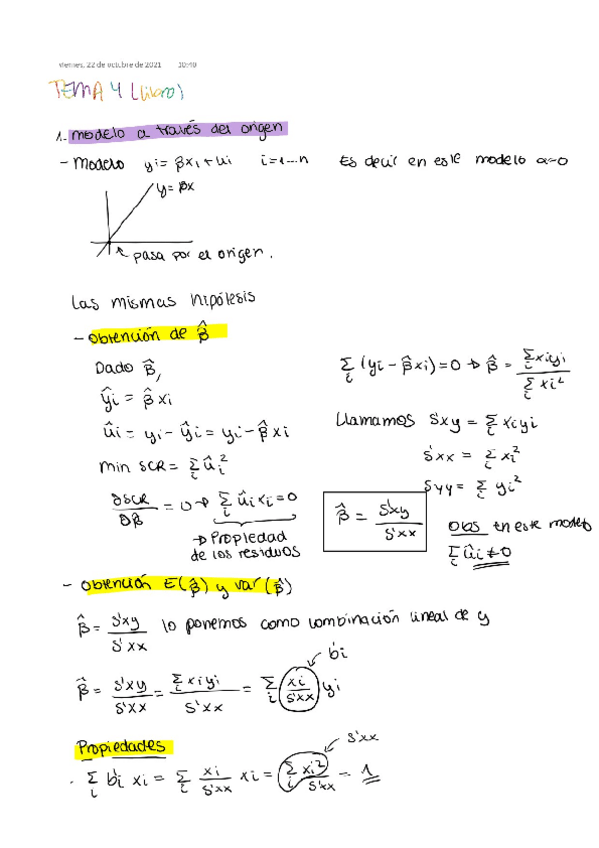 viernes, 22 de octubre de 2021 10:40
TEMA 4 (libro)
1. modelo a través del origen
- Modelo yi = βxi + ui i=1...n Es decir en este modelo α=0
y = βx
pasa por el origen.
Las mismas hipótesis
- Obtención de β̂
Dado β̂,
ŷi = β̂ xi
ûi = yi - ŷi = yi - β̂ xi
min SCR = Σi ûi²
∂SCR/∂β = 0 → Σi ûi xi = 0
→ Propiedad de los residuos
Σi (yi - β̂xi) = 0 → β̂ = Σi xiyi / Σi xi²
Llamamos S'xy = Σi xiyi
S'xx = Σi xi²
S'yy = Σi yi²
β̂ = S'xy / S'xx
Obs en este modelo
Σi ûi ≠ 0
- Obtención E(β̂) y var(β̂)
β̂ = S'xy / S'xx lo ponemos como combinación lineal de y
b'i
β̂ = S'xy / S'xx = Σi xiyi / S'xx = Σi (xi / S'xx) yi
Propiedades
S'xx
· Σi b'i xi = Σi xi / S'xx xi = Σi xi² / S'xx = 1